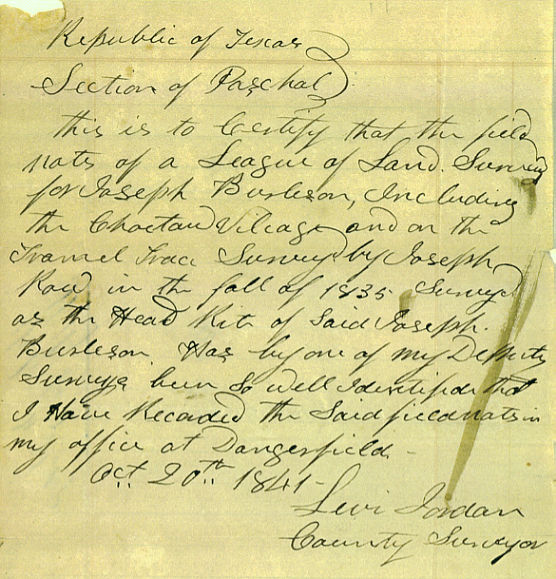 Republic of Texas
Section of Paschal
this is to Certify that the field
notes of a League of Land. Survey
for Joseph Burleson, Including
the Choctaw Vileage and on the
Tramel Trace Survey by Joseph
Row in the fall of 1835 Survey
as the Head Rite of Said Joseph.
Burleson. Has by one of my Deputy
Surveys been so well Identifide that
I Have Recorded the Said fieldnots in
my office at Dangerfield.
Oct. 20th 1841-
Levi Jordan
County Surveyor